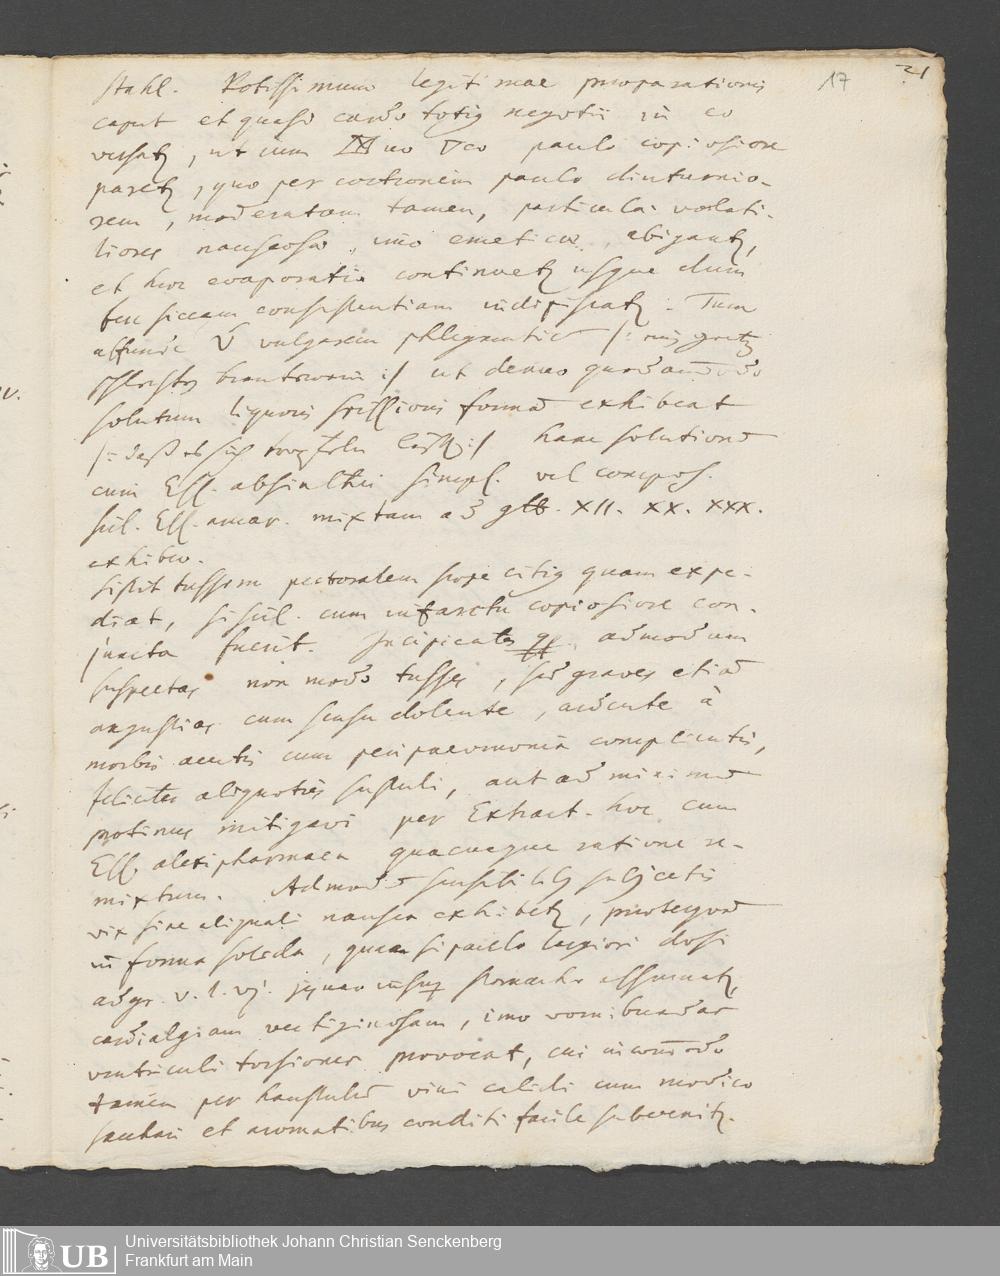 17 21
Stahl. Potissimum legitimae praeparationis
caput et quasi cardo totig negotii in eo
versatz, ut cum uo ▽co paulo copiosiore
paretz, quo per coctionem paulo diuturnio-
rem, moderatam tamen, particulae volati-
liores nauseosae, imo emeticae, abigantz,
et hoc evaporatio continuetz usque dum
fere siccam consistentiam indipiscatz. Tum
affunde V vulgarem phlegmatic /:
:/ ut denuo quodam̄odo
solutum liquoris spissioris formā exhibeat
/: daß es sich :/ hanc solutionē
cum Ess. absinthii simpl. vel compos.
sil. Ess. amar. mixtam ad gtt. XII. XX. XXX.
exhibeo.
Sistit tussem pectoralem saepe citig quam expe-
diat, si sil. cum infarctu copiosiore con-
juncta fuerit. Incipientes admodum
suspectas non modo tusses, sed graves etiā
angustias cum sensu dolente, ardente à
morbis acutis cum peripneumonia complicatis,
feliciter aliquoties sustuli, aut ad minimū
protinus mitigavi per Extract. hoc cum
Ess. alexipharmaca quacunque ratione re-
mixtum. Admodū sensibilibg subjectis
vix sine aliquali nausea exhibetz,
in forma solida, quae si paulo largiori dosi
ad gr. v. l. vj. stomacho assumatz,
cardialgiam vertiginosam, imo vomibundas
ventriculi torsiones provocat, cui incom̄odo
tamen per haustulū vini calidi cum modico
sacchari et aromatibus conditi facile subvenitz.
UB Universitätsbibliothek Johann Christian Senckenberg
Frankfurt am Main